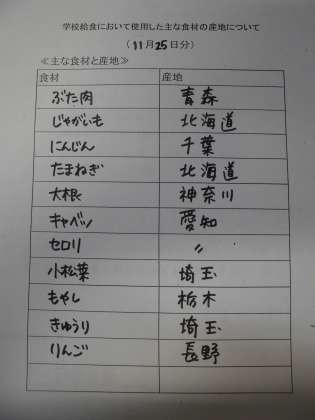 学校給食において使用した主な食材の産地について
(11月25日分)
≪主な食材と産地≫
食材 産地
ぶた肉 青森
じゃがいも 北海道
にんじん 千葉
たまねぎ 北海道
大根 神奈川
キャベツ 愛知
セロリ 〃
小松菜 埼玉
もやし 栃木
きゅうり 埼玉
りんご 長野